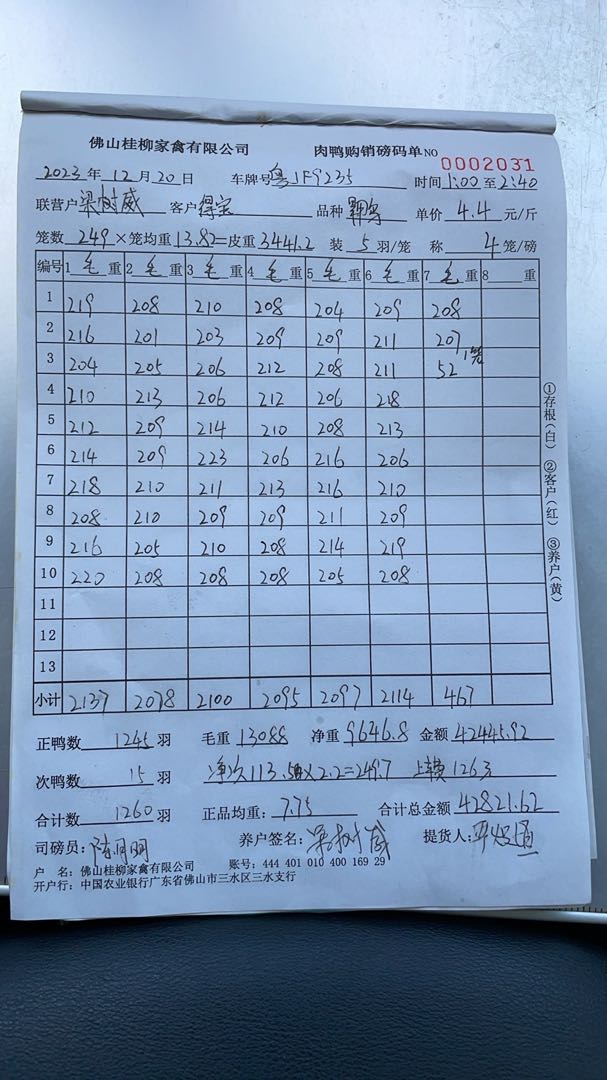 佛山桂柳家禽有限公司 肉鸭购销磅码单 NO 0002031
2023 年 12 月 20 日 车牌号 粤JF9235 时间 1:00 至 2:40
联营户 梁树威 客户 得宝 品种 单价 4.4 元/斤
笼数 249 × 笼均重 13.82 = 皮重 3441.2 装 5 羽/笼 称 4 笼/磅
编号 1 毛 重 2 毛 重 3 毛 重 4 毛 重 5 毛 重 6 毛 重 7 毛 重 8 重
1 219 208 210 208 204 209 208
2 216 201 203 209 209 211 207
3 204 205 206 212 208 211 52 1笼
4 210 213 206 212 206 218
5 212 209 214 210 208 213
6 214 209 223 206 216 206
7 218 210 211 213 216 210
8 208 210 209 209 211 209
9 216 205 210 208 214 219
10 220 208 208 208 205 208
11
12
13
小计 2137 2078 2100 2095 2097 2114 467
①存根(白) ②客户(红) ③养户(黄)
正鸭数 1245 羽 毛重 13088 净重 9646.8 金额 42445.92
次鸭数 15 羽 净次113.5 × 2.2 = 249.7 126
合计数 1260 羽 正品均重: 7.75 合计总金额 42821.62
司磅员: 陈明明 养户签名: 梁树威 提货人:
户 名: 佛山桂柳家禽有限公司 账号: 444 401 010 400 169 29
开户行: 中国农业银行广东省佛山市三水区三水支行